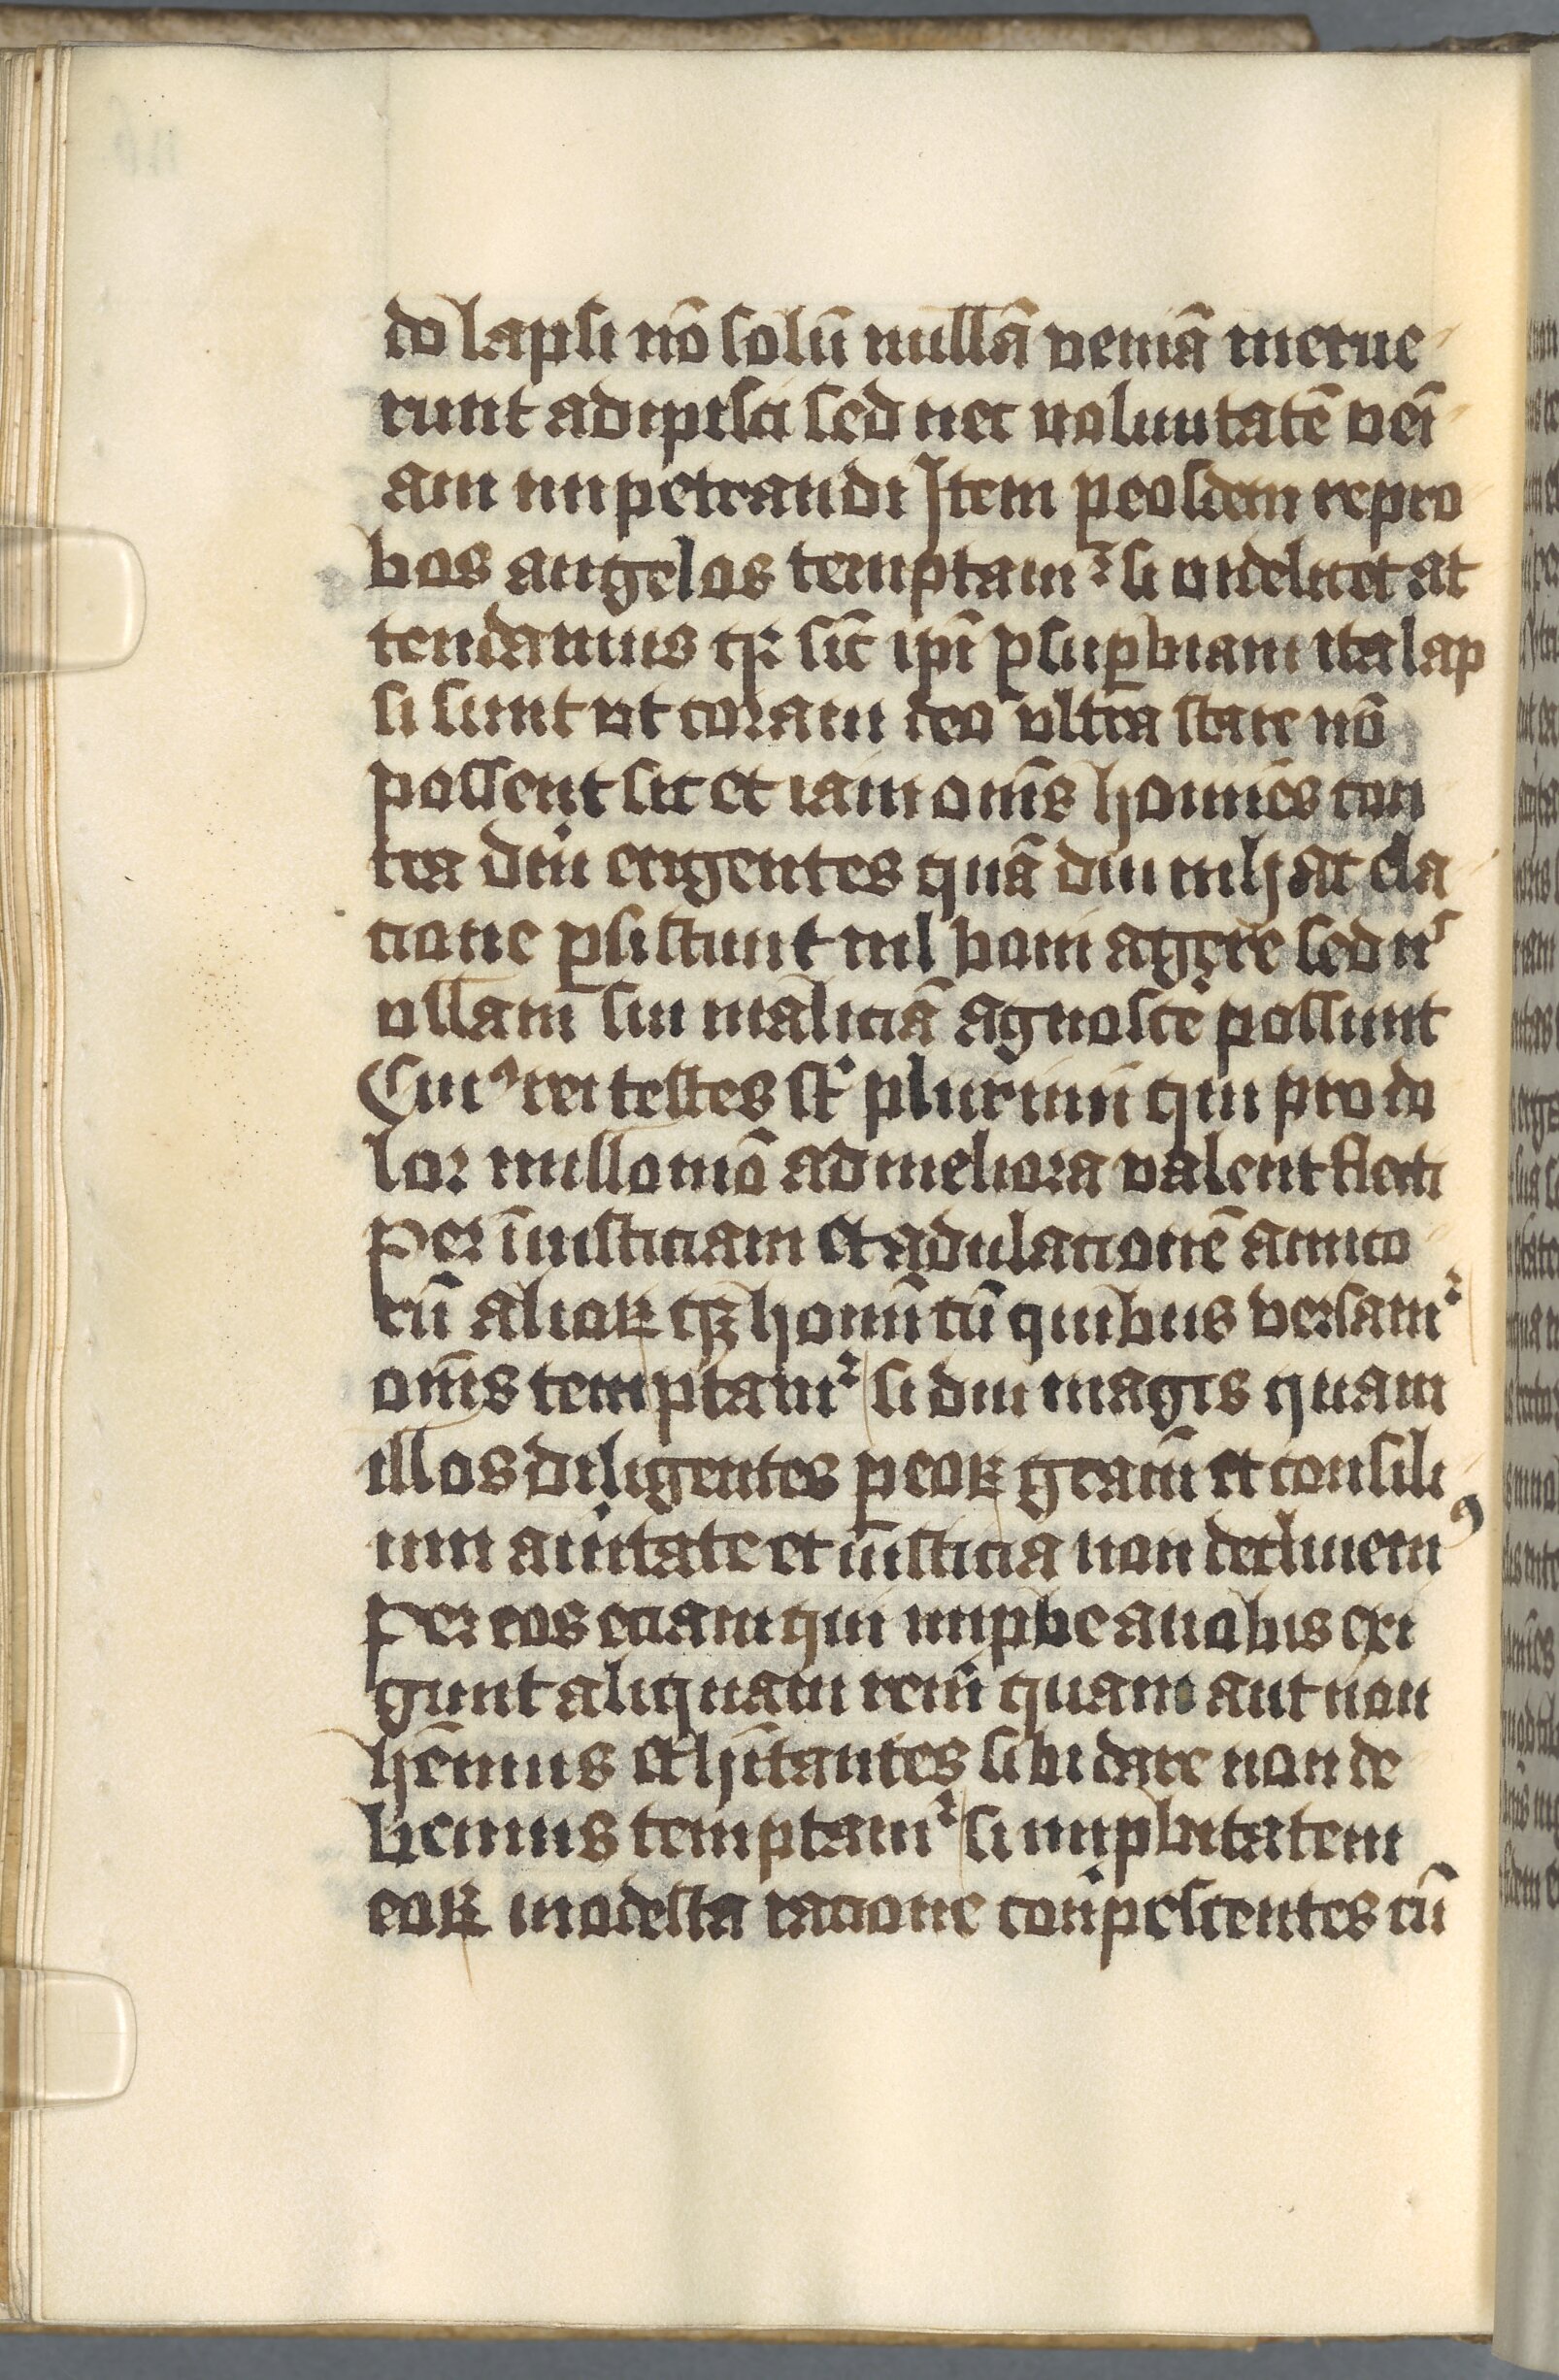 do lapsi nō solū nullā veniā merue
runt adipisci sed nec voluntatē veī
am impetrandi Item ꝑ eosdem repro
bos angelos temptamᷣ si videlicet at
tendamus qꝛ sic̄ ip̄i ꝑ suꝑbiam ita lap
si sunt ut coram deo ultra stare nō
possent sic et iam om̄s homīes con
tra dm̄ erigentes quā diu in hac ela
cione ꝑsistunt nil boni agere sed nͨ
ullam sui maliciā agnoscē possunt
Cuiꝰ rei testes st̄ plurimi qui pro do
lor nullo mō ad meliora valent flecti
Per iniusticiam et adulacionē amico
rū alioꝝ qꝫ homīn cū quibus versamᷣ
om̄s temptamᷣ si dm̄ magis quam
illos diligentes ꝑ eoꝝ gr̄am et consili
um a ūitate et iusticia non declinemꝰ
Per eos eciam qui imp̄be a nobis exi
gunt aliquam rem quam aut non
hēmus et hn̄tantes sibi dare non de
bemus temptamᷣ si imp̄bitatem
eoꝝ modesta racione conpescentes cū